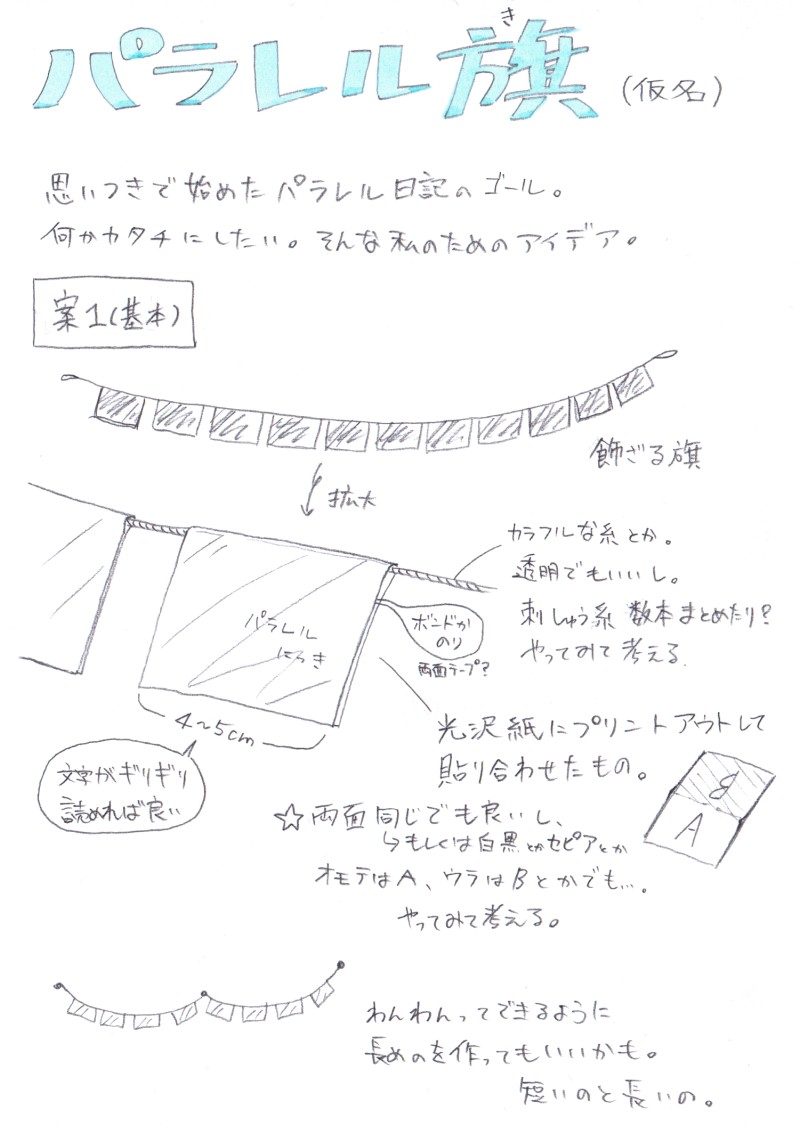 パラレル旗(仮名)
き
思いつきで始めたパラレル日記のゴール。
何かカタチにしたい。そんな私のためのアイデア。
案1(基本)
飾ざる旗
拡大
カラフルな糸とか。
透明でもいいし。
刺しゅう糸 数本まとめたり?
やってみて考える。
パラレル
にっき
ボンドか
のり
両面テープ?
4~5cm
文字がギリギリ
読めれば良い
光沢紙にプリントアウトして
貼り合わせたもの。
B
A
☆両面同じでも良いし、
↳もしくは白黒とかセピアとか
オモテはA、ウラはBとかでも…。
やってみて考える。
わんわんってできるように
長めのを作ってもいいかも。
短いのと長いの。